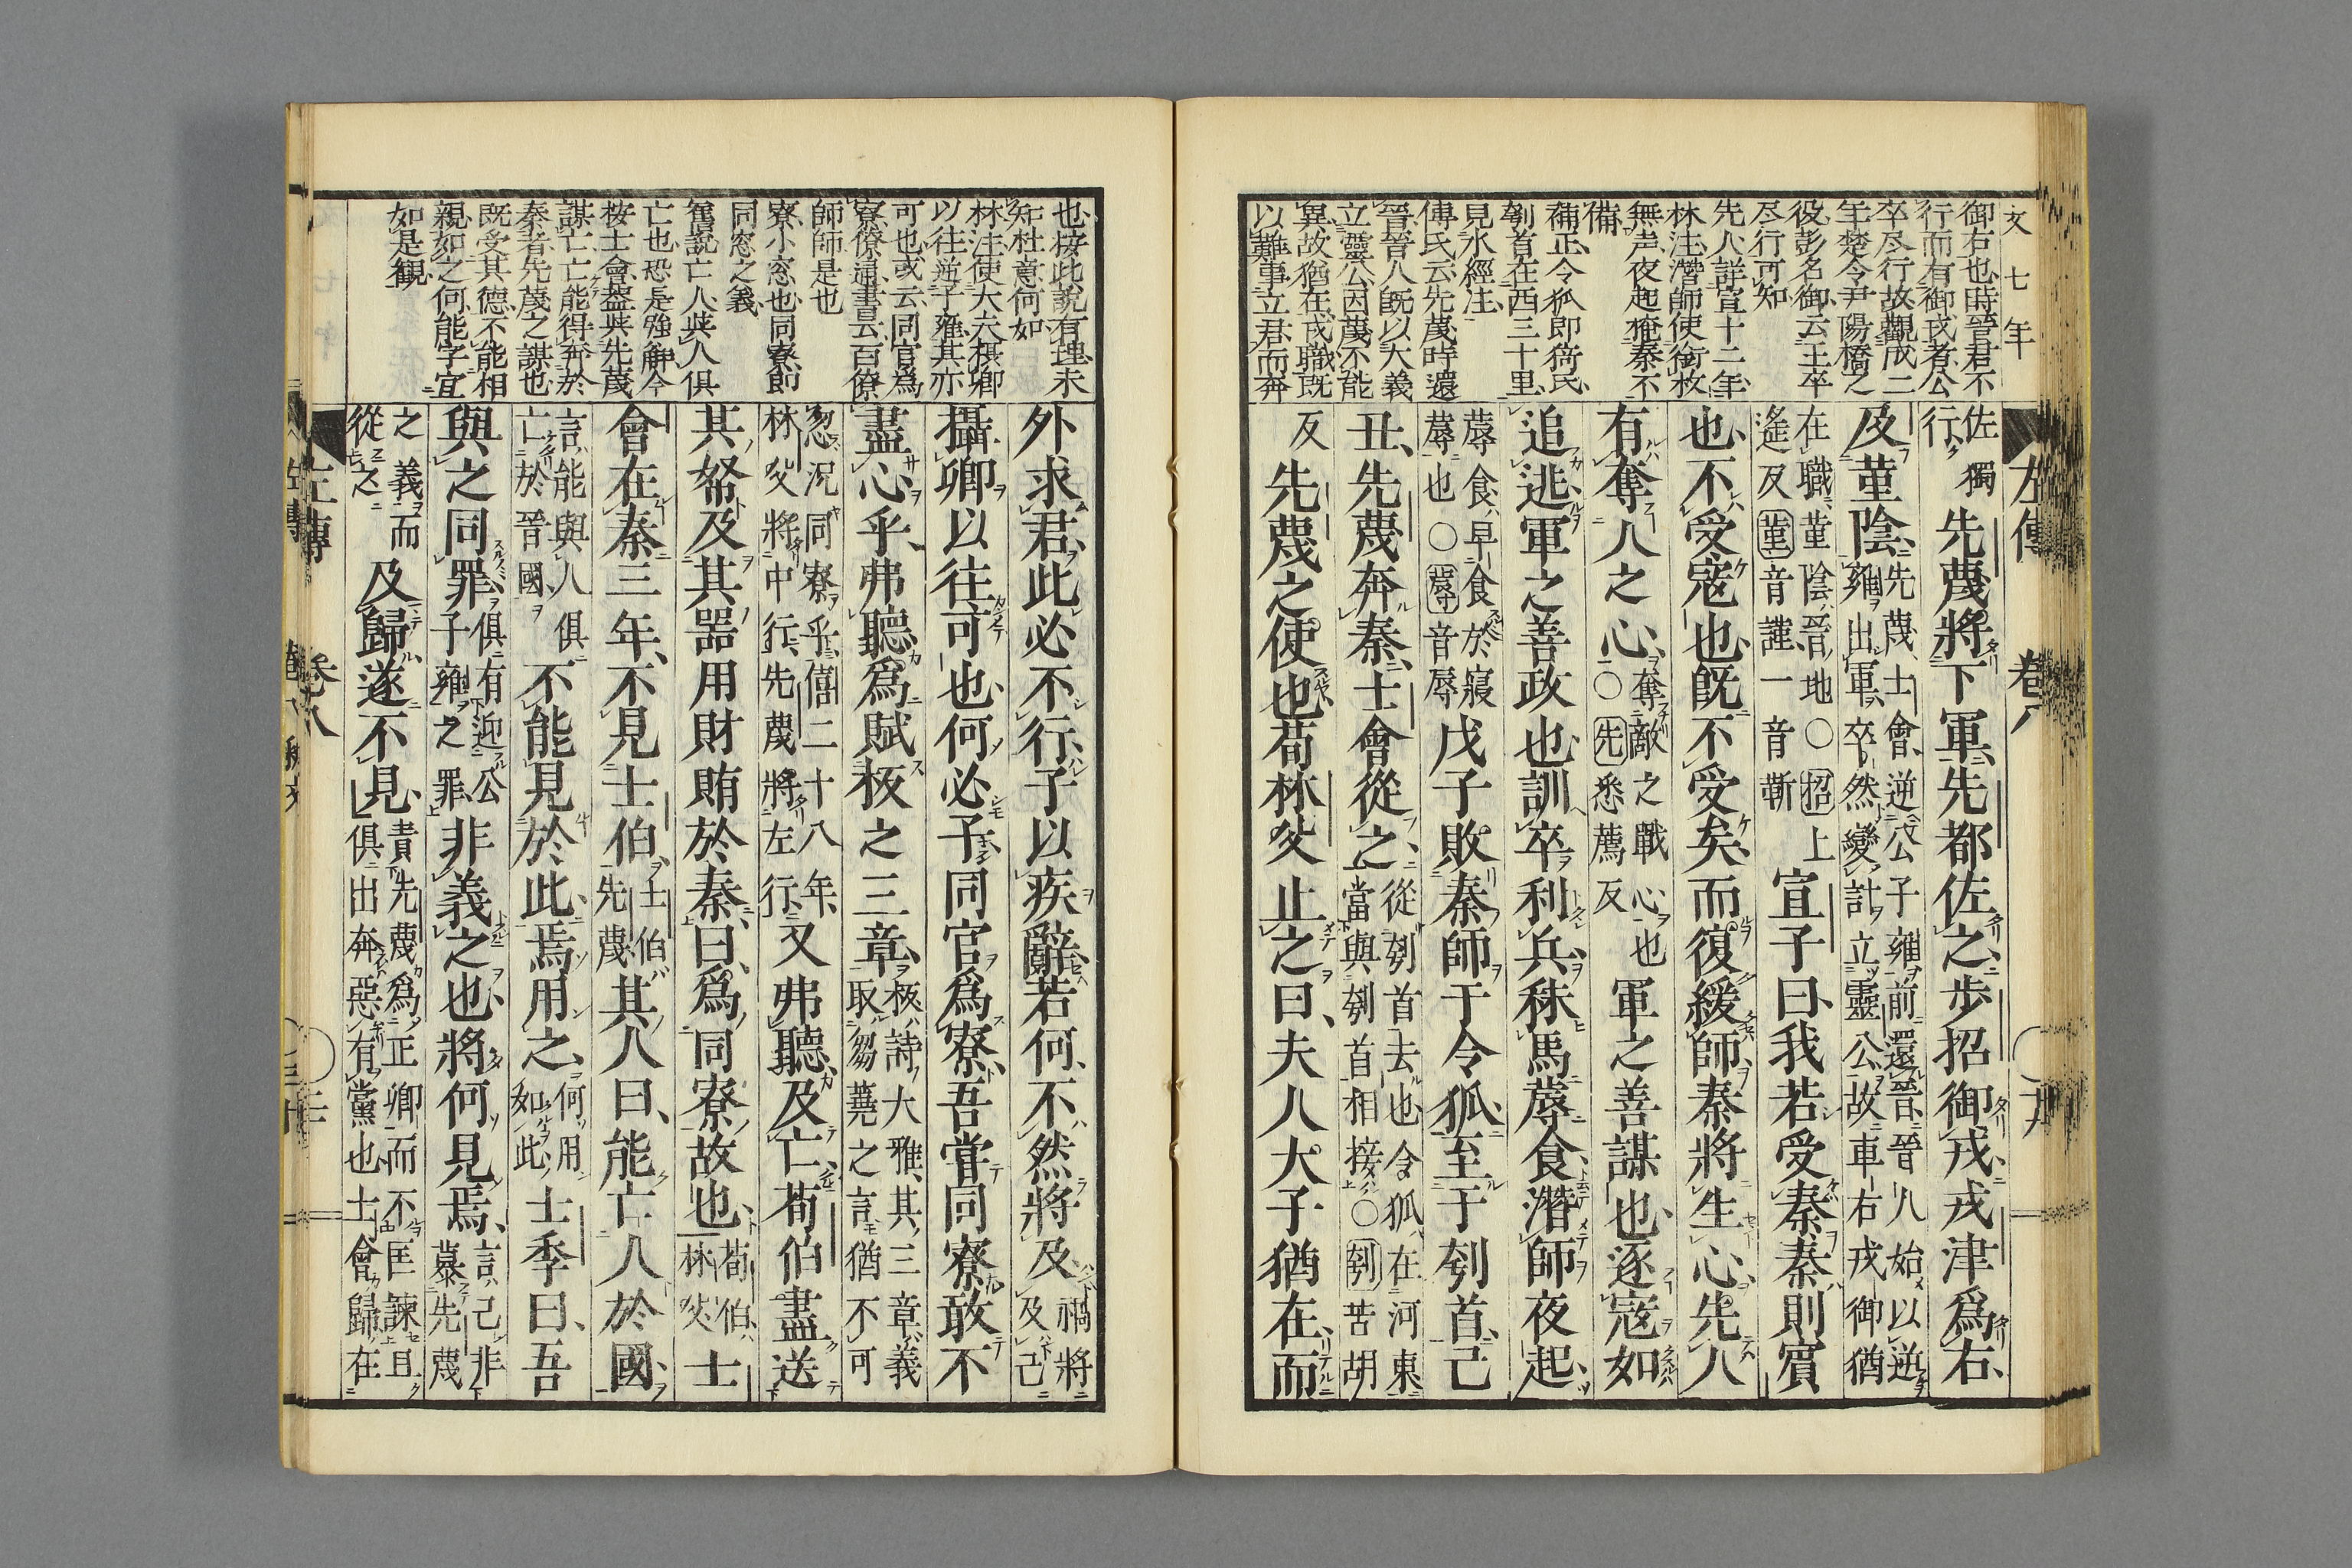 文七年
御右也時晉君不
行而有御戎者公
卒尽行故觀成二
年楚令尹陽橋之
役彭名御云王卒
尽行可知
先人詳宣十二年
林注潛師使銜枚
無声夜起掩秦不
備
補正令狐即猗氏
刳首在西三十里
見水經注
傅氏云先蔑時還
晉晉人既以大義
立靈公因蔑不能
異故猶在戎職既
以難事立君而奔
左傳 卷八
佐獨
行
先蔑將下軍先都佐之步招御戎戎津爲右
及菫陰
先蔑士會逆公子雍前還晉晉人始以逆
雍出軍卒然變計立靈公故車右戎御猶
在職菫陰晉地○招上
遙反菫音謹一音靳
宣子曰我若受秦秦則賓
也不受寇也既不受矣而復緩師秦將生心先人
有奪人之心
奪敵之戰心也
○先悉薦反
軍之善謀也逐寇如
追逃軍之善政也訓卒利兵秣馬蓐食潛師夜起
蓐食早食於寢
蓐也○蓐音辱
戊子敗秦師于令狐至于刳首己
丑先蔑奔秦士會從之
從刳首去也令狐在河東
當與刳首相接○刳苦胡
反
先蔑之使也荀林父止之曰夫人大子猶在而
也按此說有理未
知杜意何如
林注使大夫摂卿
以往逆子雍其亦
可也或云同官爲
寮僚通書曰百僚
師師是也
寮小窓也同寮即
同窓之義
舊説亡人與人俱
亡也恐是強解今
按士會蓋與先蔑
謀亡亡能得奔於
秦者先蔑之謀也
既受其德不能相
親如之何能字宜
如是観
外求君此必不行子以疾辭若何不然將及
禍將
及己
攝卿以往可也何必子同官爲寮吾嘗同寮敢不
盡心乎弗聽爲賦板之三章
板詩大雅其三章義
取芻蕘之言猶不可
忽況同寮乎僖二十八年
林父將中行先蔑將左行
又弗聽及亡荀伯盡送
其帑及其器用財賄於秦曰爲同寮故也
荀伯
林父
士
會在秦三年不見士伯
士伯
先蔑
其人曰能亡人於國
言能與人俱
亡於晉國
不能見於此焉用之
何用
如此
士季曰吾
與之同罪
俱有迎公
子雍之罪
非義之也將何見焉
言己非
慕先蔑
之義而
從之
及歸遂不見
責先蔑爲正卿而不匡諫且
俱出奔惡有黨也士會歸在
左傳 卷八